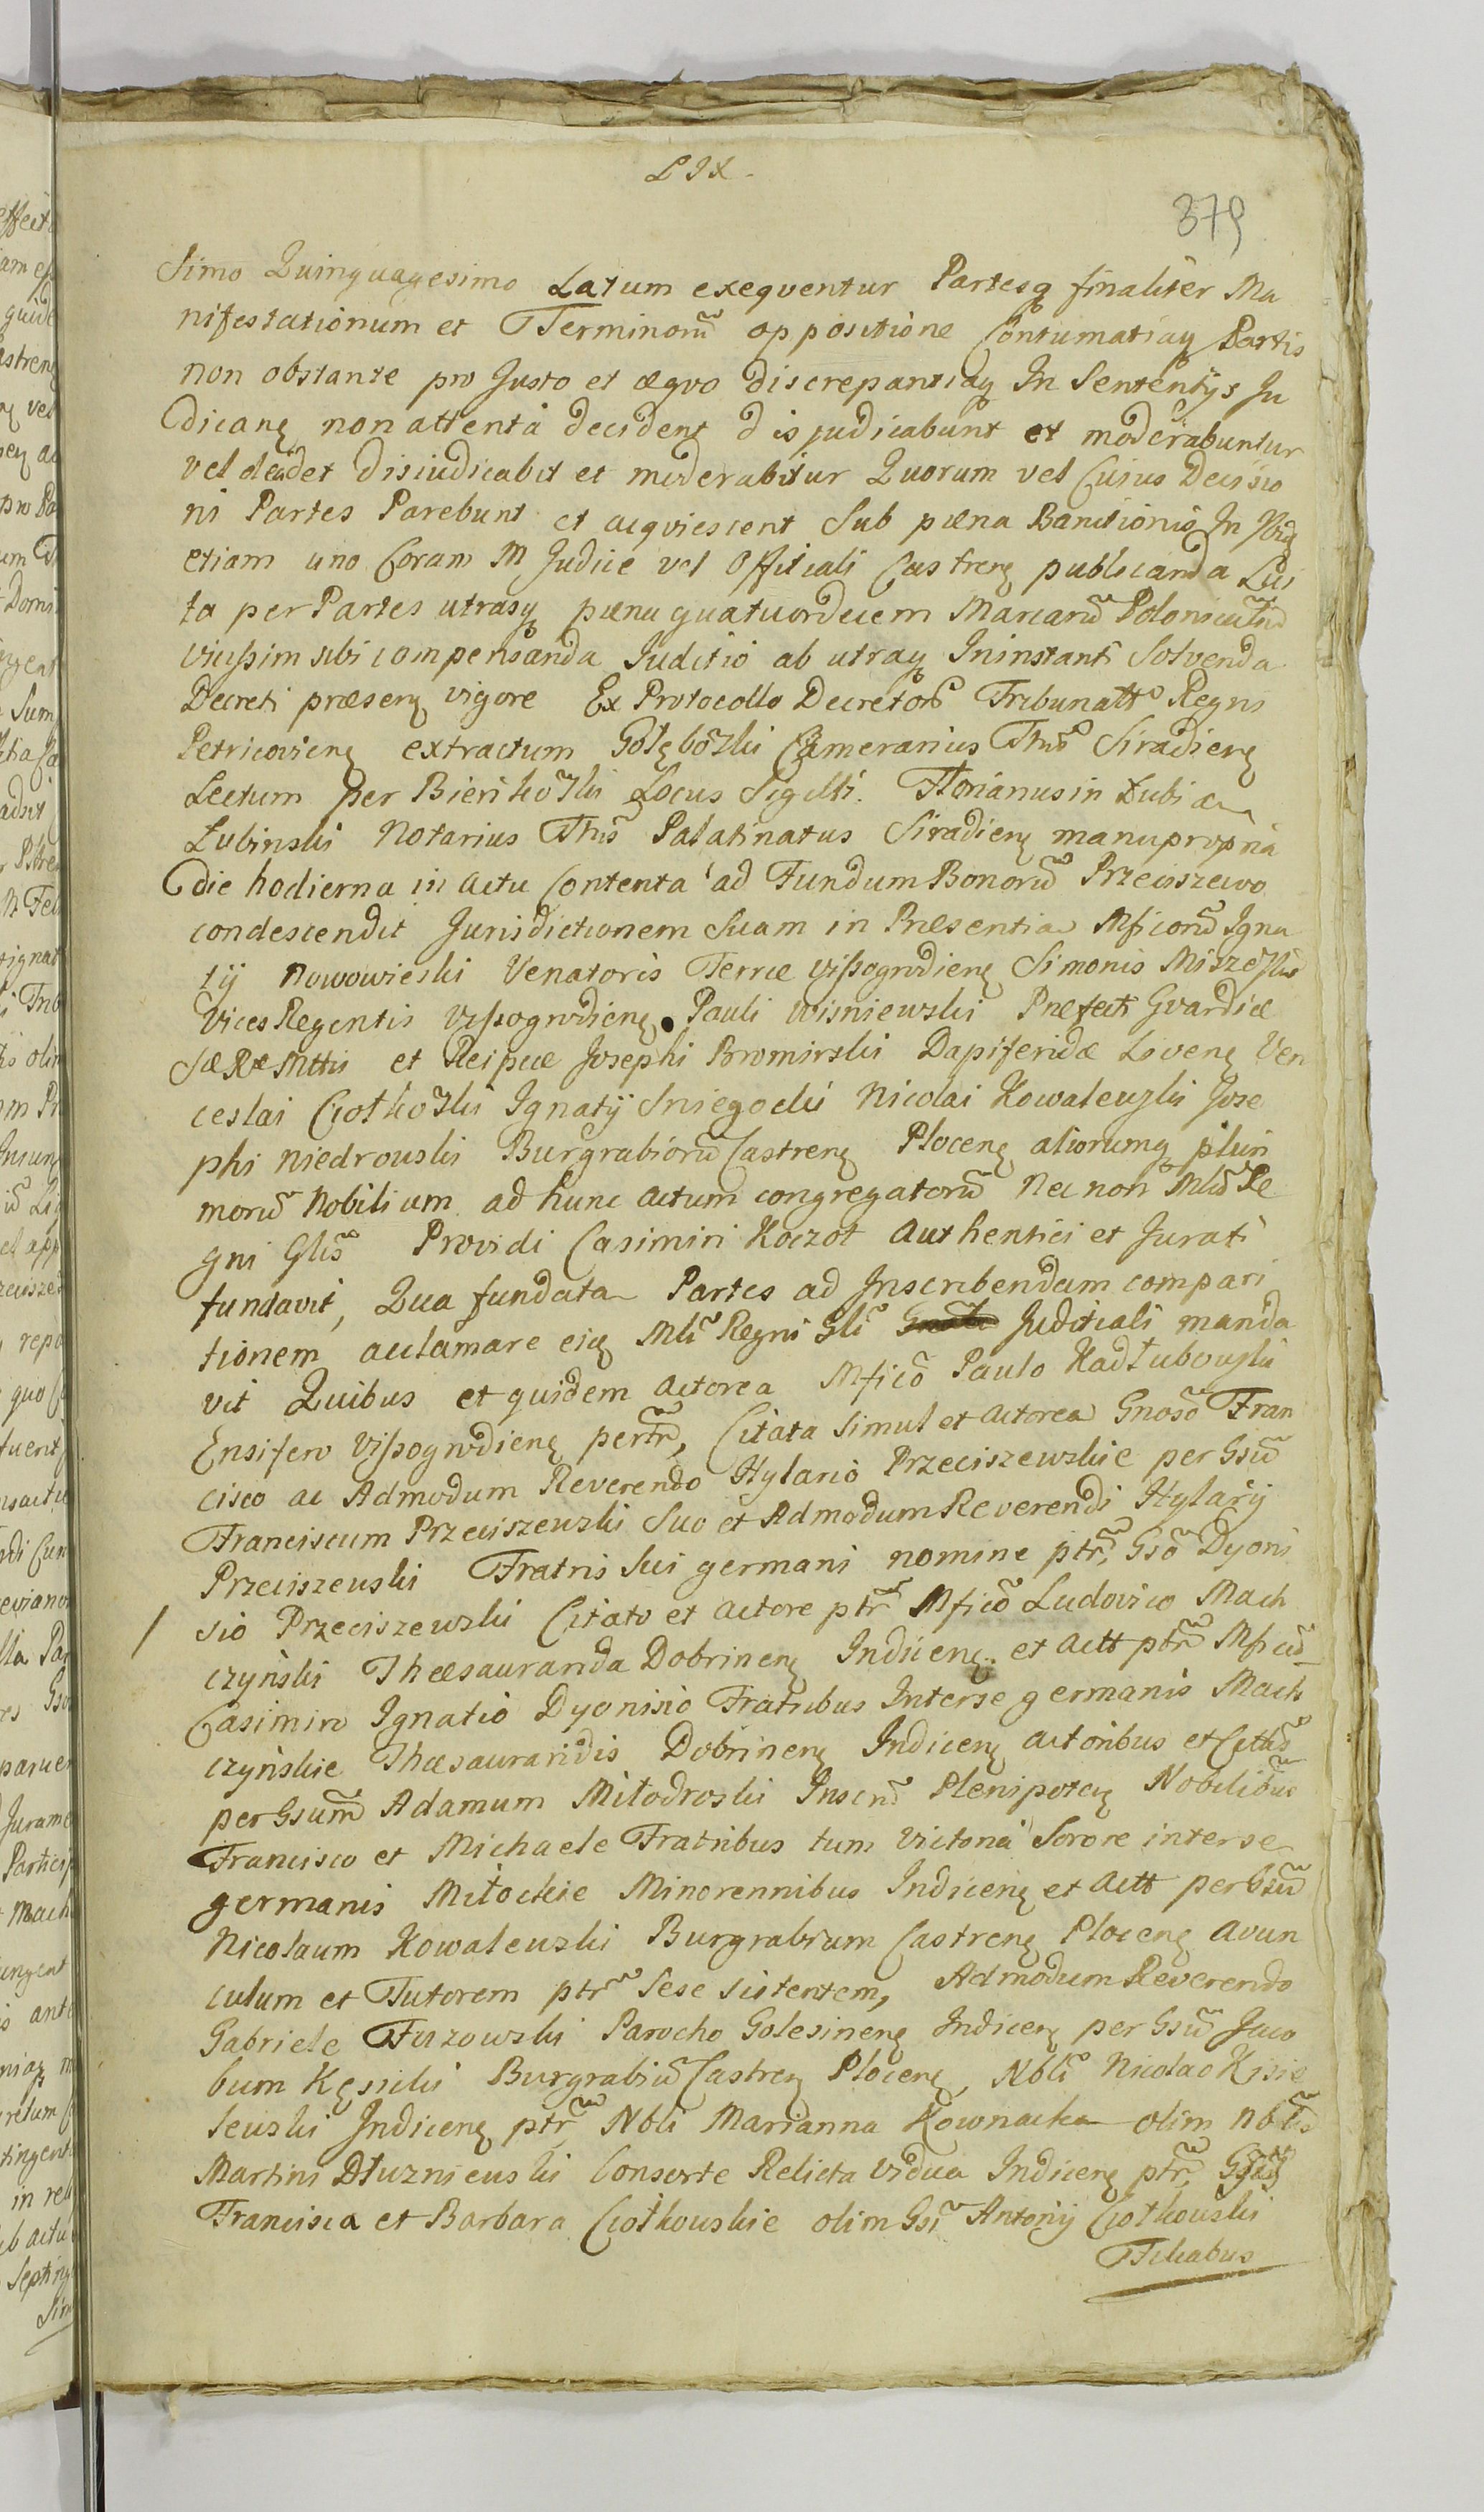 LIX.
379
simo Quinquagesimo Latum exequentur Partesq finaliter Ma
nifestationum et Terminorũ oppositione Contumatiaq Partis
non obstante pro Justo et æquo discrepantiaq In Sententijs Ju
dicanę non attenta decident disjudicabunt et moderabuntur
vel decidet disiudicabit et moderabitur Quorum vel Cuius Decisio
ni Partes Parebunt et acquiescent Sub pæna Banitionis In
etiam uno Coram M Judice vel Officiali Castrenę publicanda Lui
ta per Partes utrasq pæna quatuordecem Marcarũ
vicissim sibi compensanda Juditio ab utraq Ininstanti Solvenda
Decreti præsenę vigore Ex Protocollo Decretorũ Tribunatt Regni
Petricovienę extractum Gołębowski Camerarius Siradienę
Lectum per Bieńkowski Locus Sigilli. Florianus in Łubia
Łubinski Notarius Palatinatus Siradienę manupropria
die hodierna in actu Contenta ad Fundum Bonorũ Przeciszewo
condescendit Jurisdictionem Suam in Præsentia Mficorũ Igna
tij Nowowieski Venatoris Terræ Vissogrodienę Simonis
Vices Regentis Vissogrodienę Pauli Wisniewski Præfecti Gvardiæ
SæRæMttis et Reipcæ Josephi Bromirski Dapiferidæ Livenę Ven
ceslai Ciołkowski Ignatij Sniegocki Nicolai Kowalewski Jose
phi Niedrowski Burgrabiorũ Castrenę Plocenę aliorumq pluri
morũ Nobilium ad hunc actum congregatorũ Nec non Mlis Re
gni Glis Providi Casimiri Koczot Authentici et Jurati
fundavit, Qua fundata Partes ad Inscribendam compari
tionem acclamare eię Mli Regni Gli Juditiali manda
vit Quibus et quidem actorea Mfico Paulo Kadłubowski
Ensifero Vissogrodienę pertr, Citata Simul et Actorea Gnoso Fran
cisco ac Admodum Reverendo Hylario Przeciszewskie per Gsũ
Franciscum Przeciszewski Suo et Admodum Reverendi Hylarij
Przeciszewski Fratris Sui germani nomine ptr, Gso Dyoni
sio Przeciszewski Citato et Actore ptr Mfico Ludovico Mach
czyński Thæsauranda Dobrinenę Indicenę et Actt ptr Mficis
Casimiro Ignatio Dyonisio Fratribus Interse germanis Mach
czyńskie Thæsaurandis Dobrinenę Indicenę actoribus et Citatis
per Gsum Adamum Miłodroski Inscri Plenipotenę Nobilibus
Francisco et Michaele Fratribus tum Victoria Sorore interse
germanis Miłockie Minorennibus Indicenę et Actt per Gsũ
Nicolaum Kowalewski Burgrabium Castrenę Plocenę avun
culum et Tutorem ptr Sese sistentem, Admodum Reverendo
Gabriele Parocho Golesinenę Indicenę per Gsũ Jaco
bum Kęsicki Burgrabiũ Castrenę Plocenę, Nbli Nicolao Kisie
lewski Indicenę ptr Nbli Marianna Kownacka olim Nblis
Martini Dłużniewski Consorte Relicta Vidua Indicenę ptr,
Francisca et Barbara Ciołkowskie olim Gsi Antonij Ciołkowski
Filiabus